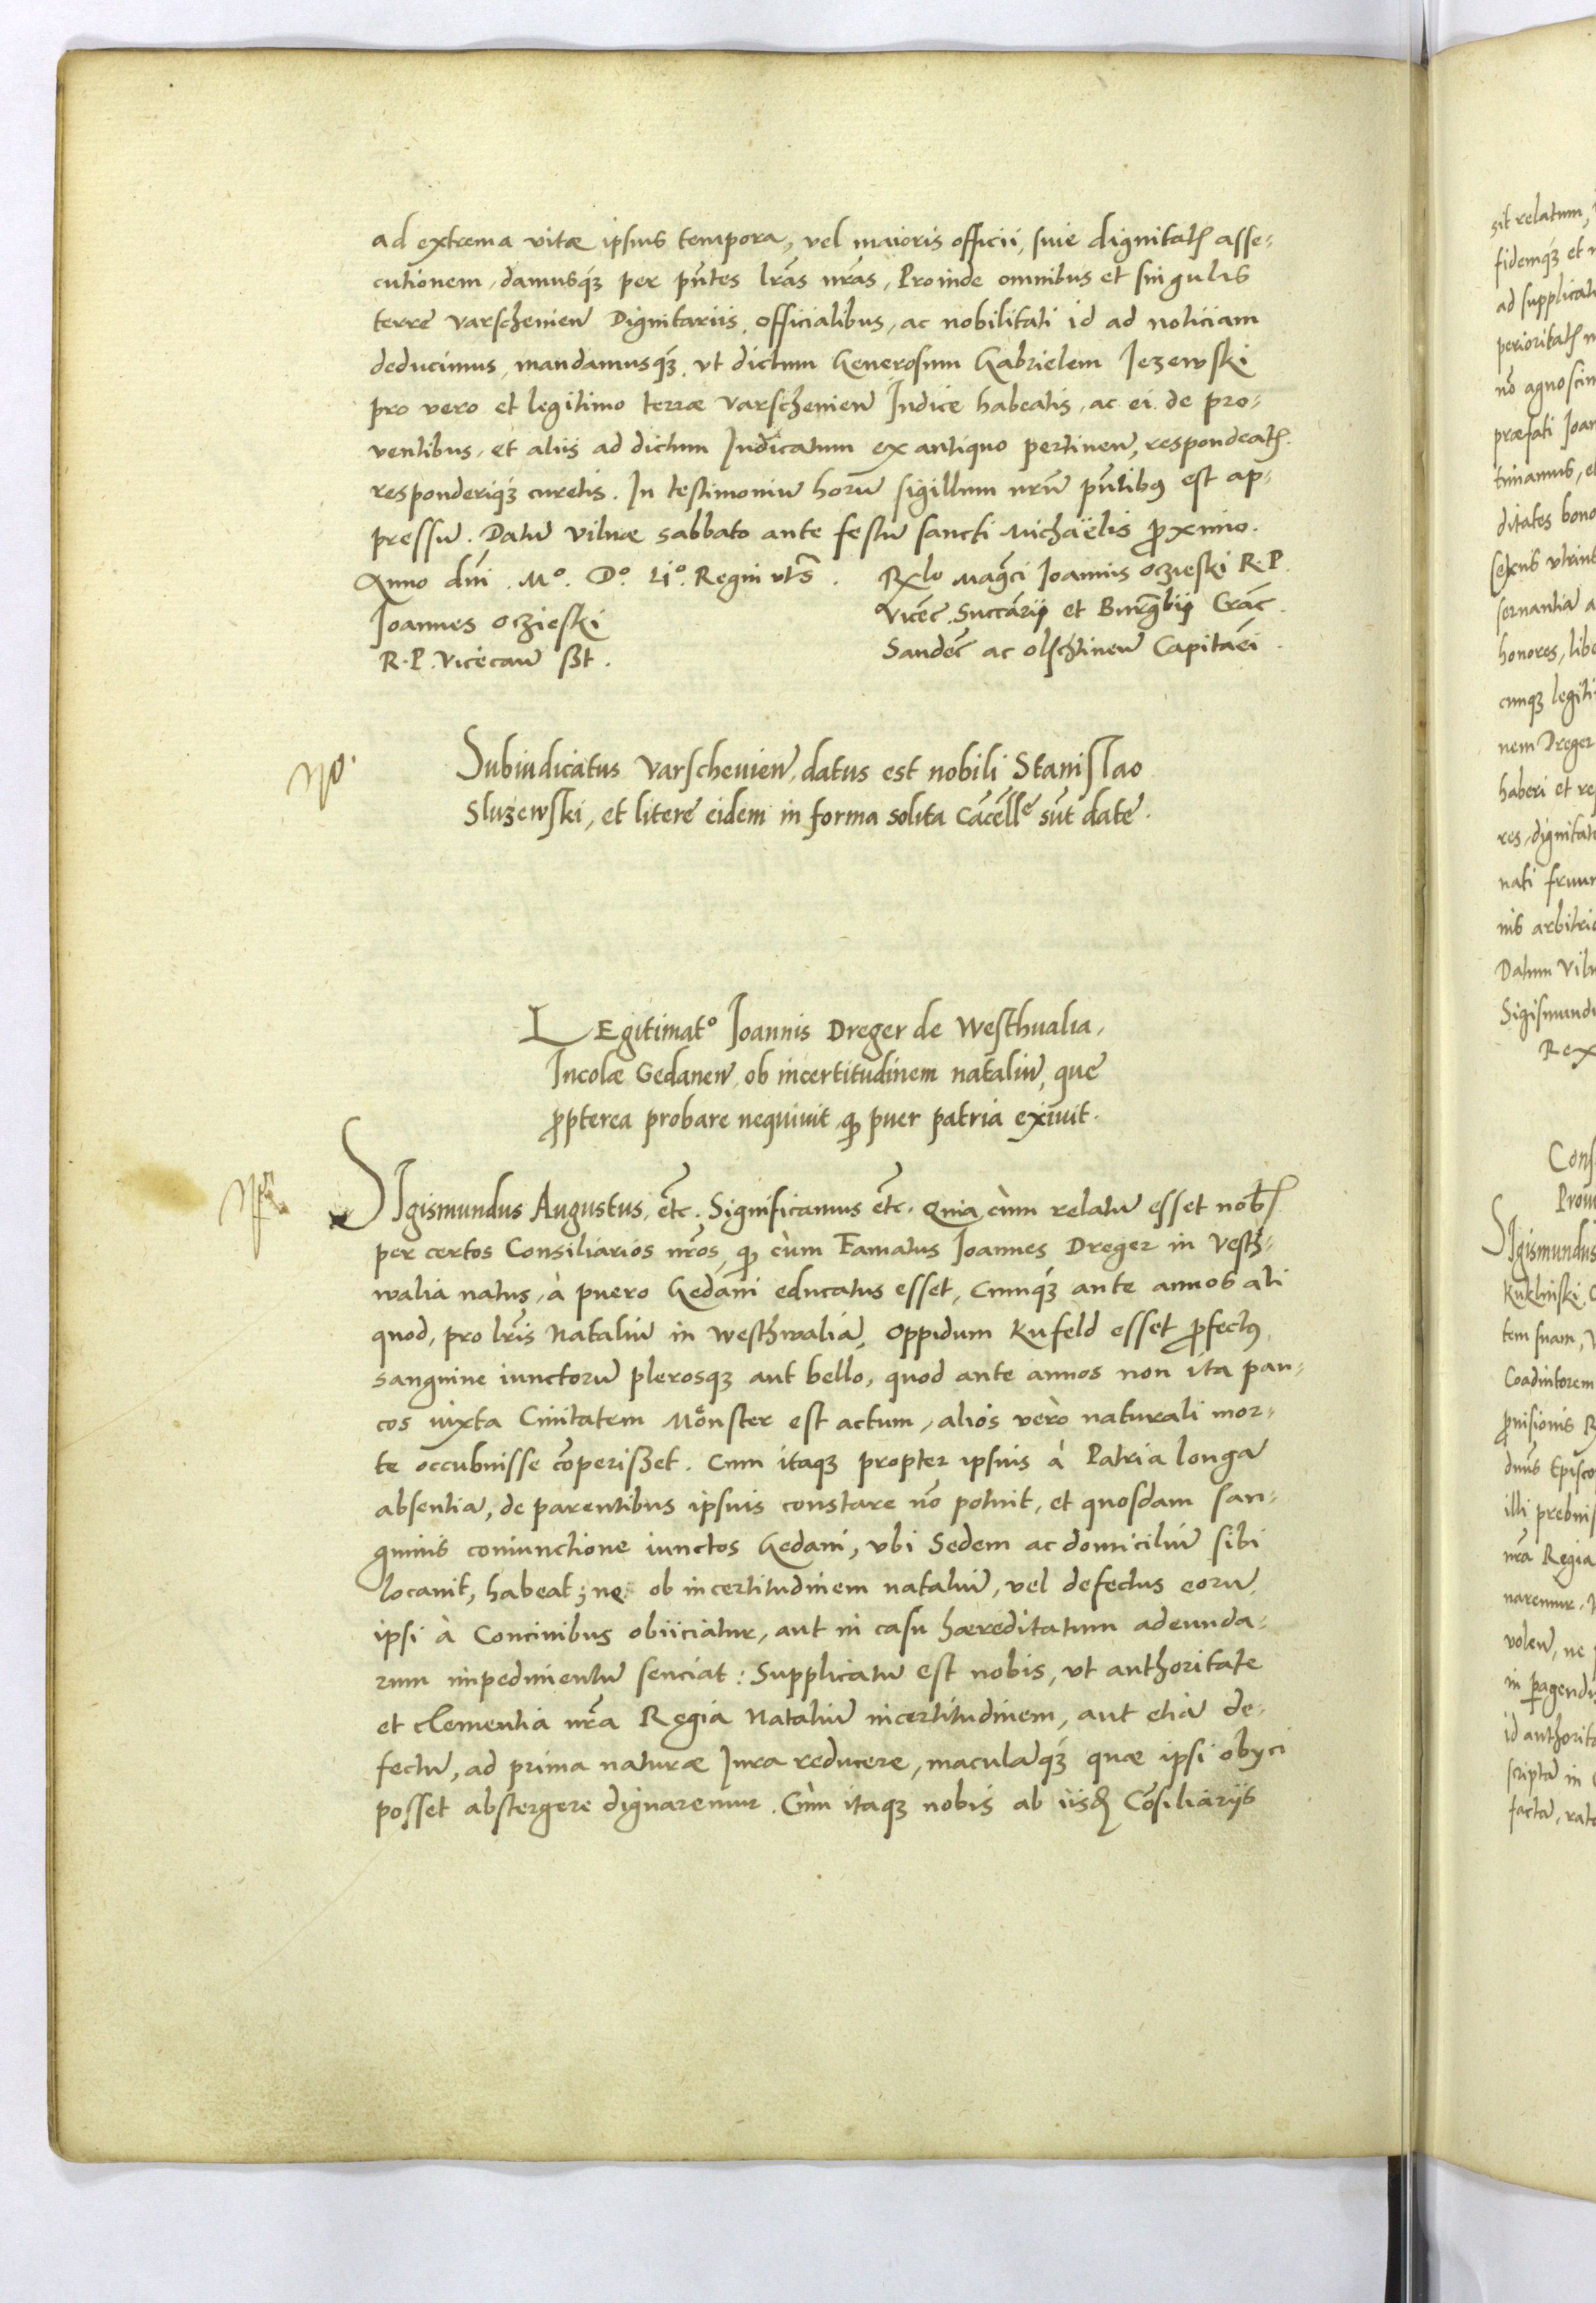 ad extrema vitæ ipsius tempora, vel maioris officii, sive dignitatꝭ asse-
cutionem, damusq́ꝫ per pn̄tes lr̄as nr̄as, Proinde omnibus et singulis
terrę Varscheuien̄ Dignitariis, officialibus, ac nobilitati id ad noticiam
deducimus, mandamusq́ꝫ, vt dictum Generosum Gabrielem Jezewski
pro vero et legitimo terræ Varscheuien̄ Judice habeatis, ac ei de pro-
ventibus, et aliis ad dictum Judicatum ex antiquo pertinen̄, respondeatꝭ
responderiq́ꝫ curetis. In testimoniū horū sigillum nrū̄ pn̄tibꝰ est ap-
pressū. Datū Vilnæ sabbato ante festū sancti Michaëlis ꝓximo.
Anno dn̄i. Mº. Dº. Liº. Regni vts̄.
Joannes Oczieski
R. P. Vicecan̄ sst.
Rx̄lo Mag̃ci Joannis Oczieski R. P.
Vicec̄. Succarij et Burg̃bij Crac̄.
Sandec̄ ac olschtinen̄ Capitan̄ei.
Subiudicatus Varscheuien̄, datus est nobili Stanislao
Sluzewski, et literę eidem in forma solita Cācell̄ę sūt datę.
LEgitimatº Joannis Dreger de Westhualia,
Incolæ Gedanen̄, ob incertitudinem nataliū, que
ꝓpterea probare nequiuit, qꝫ puer patria exiuit.
SIgismundus Augustus, etc̄. Significamus etc̄. Quia cùm relatū esset nobꝭ
per certos Consiliarios nr̄os, qꝫ cùm Famatus Joannes Dreger in Vesth-
walia natus, à puero Gedani educatus esset, Cumq́ꝫ ante annos ali
quod, pro lr̄is Nataliū in Westhwaliā, Oppidum Kufeld esset ꝓfectꝰ
sanguine iunctorū plerosqꝫ aut bello, quod ante annos non ita pau-
cos iuxta Ciuitatem Mönster est actum, alios verò naturali mor-
te occubuisse cōperisset. Cum itaqꝫ propter ipsius à Patria longā
absentiā, de parentibus ipsius constare nō potuit, et quosdam san-
guinis coniunctione iunctos Gedani, vbi Sedem ac domiciliū sibi
locauit, habeat; ne ob incertitudinem nataliū, vel defectus eorū,
ipsi à Conciuibus obiiciatur, aut in casu hæreditatum adeunda-
rum impedimentū senciat: Supplicatū est nobis, vt authoritate
et clementia nr̄a Regia Nataliū incertitudinem, aut etiā de-
fectū, ad prima naturæ Jura reducere, maculāq́ꝫ quæ ipsi obijci
posset abstergere dignaremur. Cùm itaqꝫ nobis ab iisdꝫ Cōsiliarijs
sit relatum,
fidemq́ꝫ et
ad supplicati
perioritatꝭ
nō agnoscim
præfati Joan
timamus, et
ditates bono
sexus vtrius
seruantia a
honores, libe
cunqꝫ legiti
nem Dreger
haberi et re
res, dignitat
nati fruun
nis arbitrio
Datum Viln
Sigismundu
Rex
Cons
Prou
SIgismundus
Kuklinski
tem suam,
Coadiutorem
ꝓuisionis
dnūs Episco
illi prebuis
nr̄a Regia
naremur.
volen̄, ne
in ꝑagendis
id authorita
scripta in
facta, rata